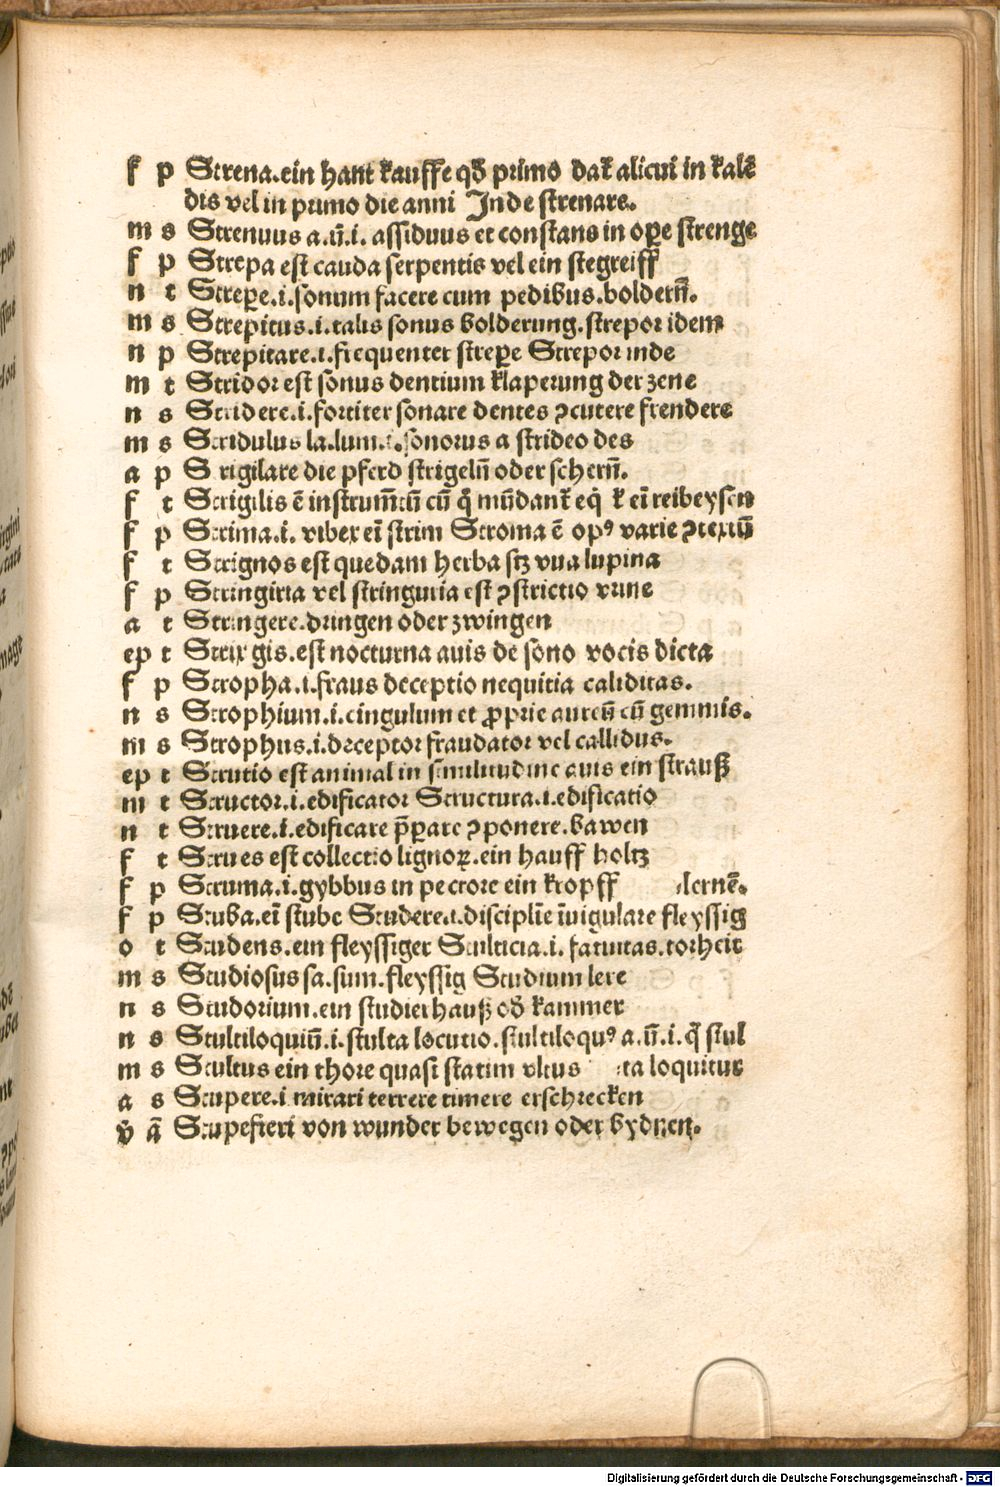 f p Strena.ein hant kauffe qď primo dať alicui in kalē
dis vel in primo die anni Inde strenare.
m s Strenuus a.ū.i. assiduus et constans in oꝑe strenge
f p Strepa est cauda serpentis vel ein stegreiff
n t Streꝑe.i.sonum facere cum pedibus.boldern̄.
m s Strepitus.i.talis sonus bolderung.strepor idem
n p Strepitare.i.frequenter streꝑe Strepor inde
m t Stridor est sonus dentium klaperung der zene
n s Stridere.i.fortiter sonare dentes ꝯcutere frendere
m s Stridulus la.lum.i.sonorus a strideo des
a p S rigilare die pferd strigelū oder schern̄.
f t Strigilis ē instrum̄tū cū q̄ mūdant̄ eq̇ t̄ eī reibeysen
f p Strima.i. vibex eī strim Stroma ē opꝰ varie ꝯtextū
f t Strignos est quedam herba sꝫ vua lupina
f p Stringiria vel stringuria est ꝯstrictio vrine
a t Stringere.dringen oder zwingen
ep t Strix gis.est nocturna auis de sono vocis dicta
f p Stropha.i.fraus deceptio nequitia caliditas.
n s Strophium.i.cingulum et ꝓprie aureū cū gemmis.
m s Strophus.i.deceptor fraudator vel callidus.
ep t Strutio est animal in similitudine auis ein strauß
m t Structor.i.edificator Structura.i.edificatio
n t Struere.i.edificare p̄ꝑare ꝯponere.bawen
f t Strues est collectio lignoꝝ.ein hauff holtz
f p Struma.i.gybbus in pectore ein kropff lernē.
f p Stuba.eī stube Studere.i.disciplīe īuigulare fleyssig
o t Studens.ein fleyssiger Stulticia.i. fatuitas.torheit
m s Studiosus sa.sum.fleyssig Studium lere
n s Studorium.ein studierhauß oď kammer
n s Stultiloquiū.i.stulta locutio.stultiloquꝰ a.ū.i.q̄ stul
m s Stultus ein thore quasi statim vltus ta loquitur
a s Stupere.i mirari terrere timere erschrecken
v̄ ā Stupefieri von wunder bewegen oder bydnen.
Digitalisierung gefördert durch die Deutsche Forschungsgemeinschaft - DFG